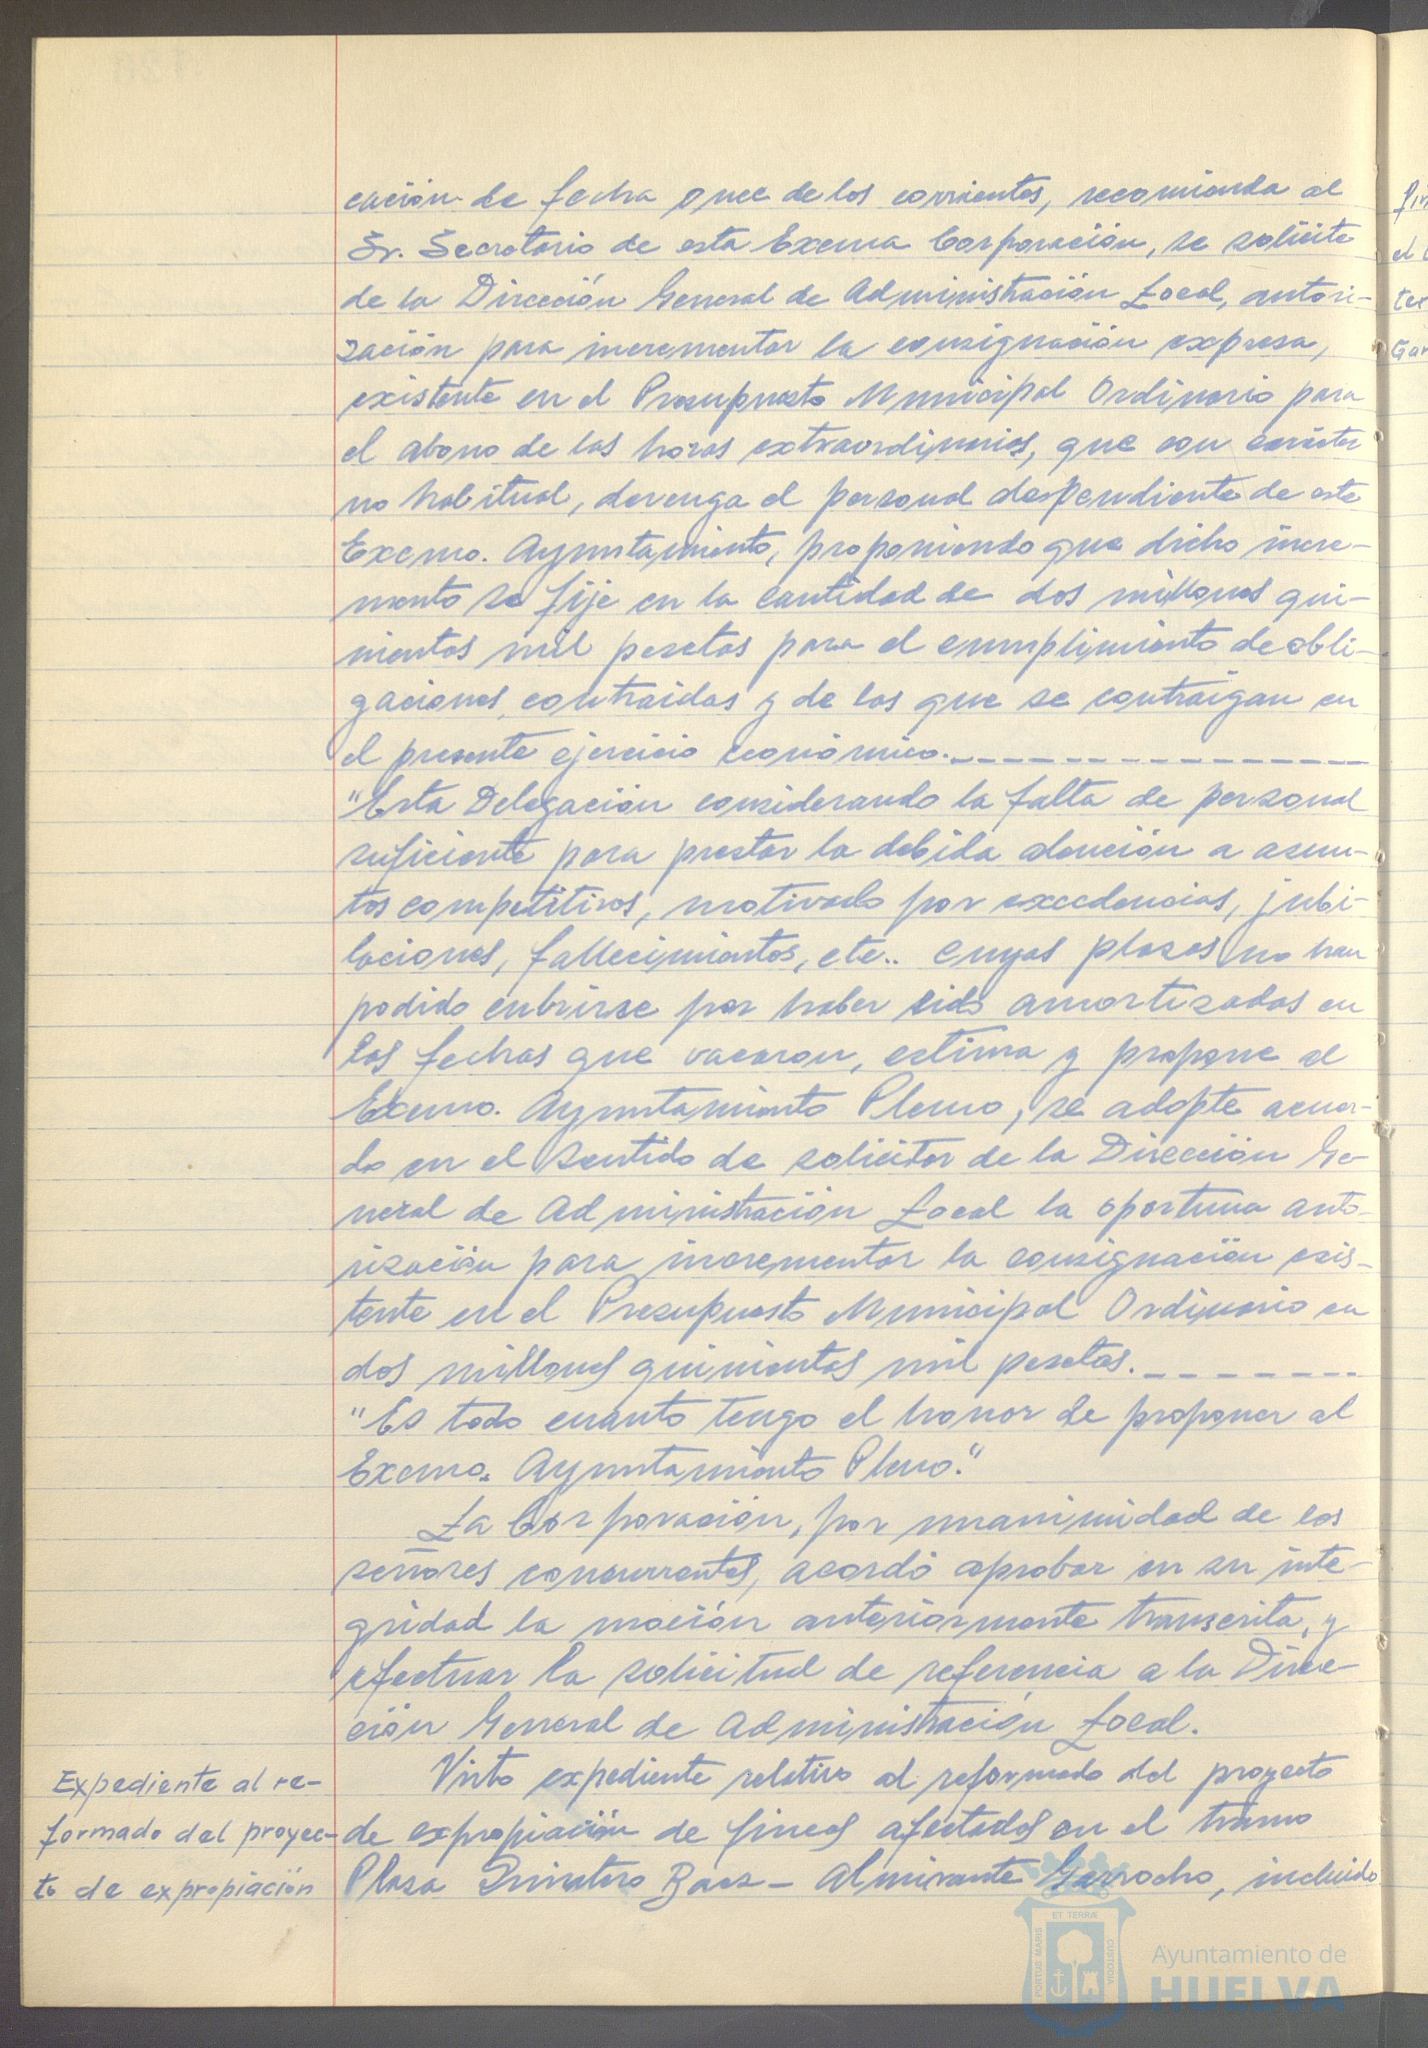 cación de fecha once de los corrientes, recomienda al
Sr. Secretario de esta Excma Corporación, se solicite
de la Dirección General de Administración Local, autori-
zación para incrementar la consignación expresa,
existente en el Presupuesto Municipal Ordinario para
el abono de las horas extraordinarias, que con carácter
no habitual, devenga el personal despendiente de este
Excmo. Ayuntamiento, proponiendo que dicho incre-
mento se fije en la cantidad de dos millones qui-
nientos mil pesetas para el cumplimiento de obli-
gaciones contraidas y de las que se contraigan en
el presente ejercicio económico.
"Esta Delegación considerando la falta de personal
suficiente para prestar la debida atención a asun-
tos competitivos, motivado por excedencias, jubi-
laciones, fallecimientos, etc.. cuyas plazas no han
podido cubrirse por haber sido amortizadas en
las fechas que vacaron, estima y propone al
Excmo. Ayuntamiento Pleno, se adopte acuer-
do en el sentido de solicitar de la Dirección Ge-
neral de Administración Local la oportuna auto-
rización para incrementar la consignación exis-
tente en el Presupuesto Municipal Ordinario en
dos millones quinientas mil pesetas.
"Es todo cuanto tengo el honor de proponer al
Excmo. Ayuntamiento Pleno."
La Corporación, por unanimidad de los
señores concurrentes, acordó aprobar en su inte-
gridad la moción anteriormente transcrita, y
efectuar la solicitud de referencia a la Direc-
ción General de Administración Local.
Expediente al re-
formado del proyec-
to de expropiación
Visto expediente relativo al reformado del proyecto
de expropiación de fincas afectadas en el tramo
Plaza Quintero Baez - Almirante Garrocho, incluido
PORTUS MARIS ET TERRÆ CUSTODIA
Ayuntamiento de
HUELVA